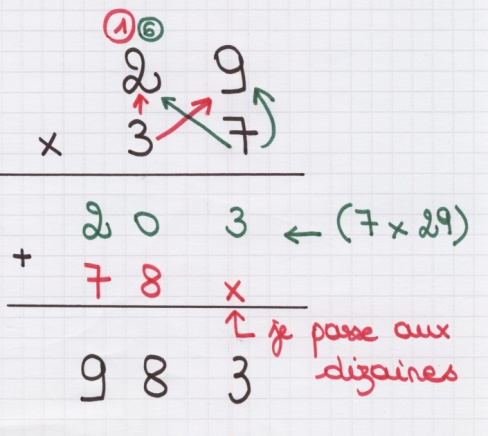 1 6
2 9
× 3 7
2 0 3 ← (7 × 29)
+ 7 8 x
je passe aux
dizaines
9 8 3